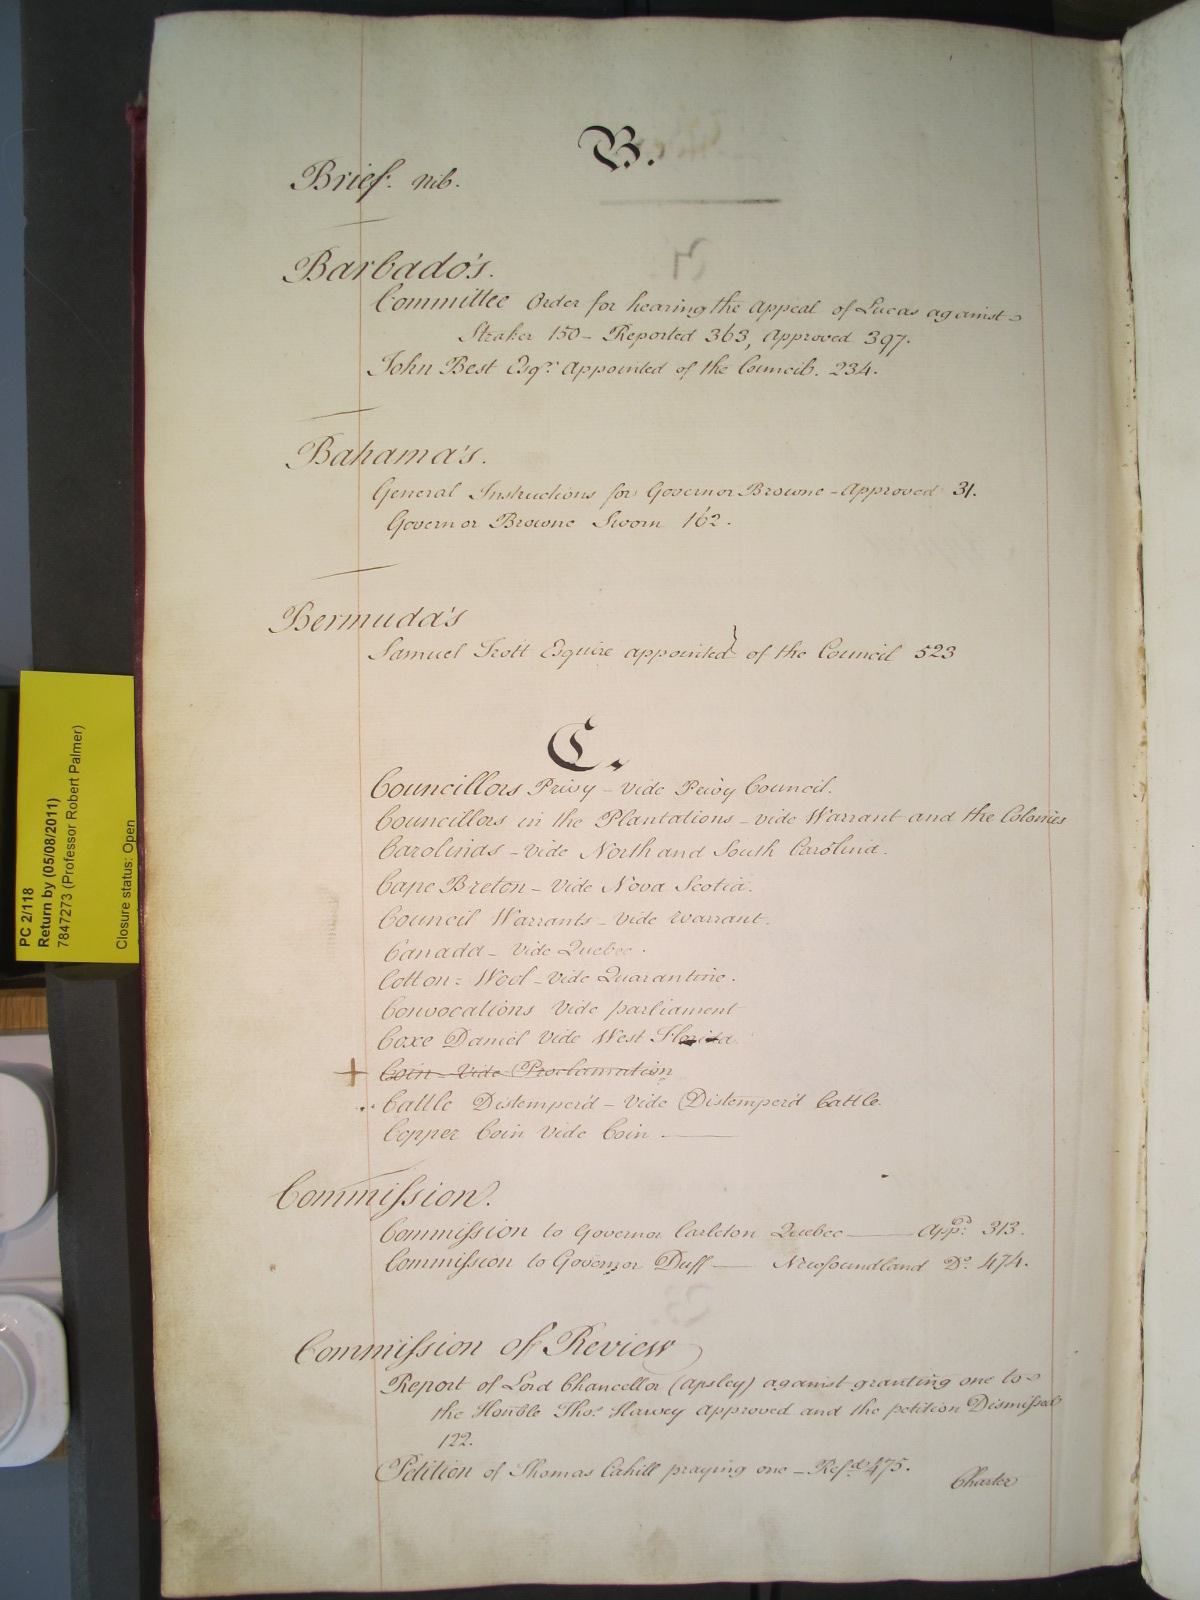 B.
Brief. nib.
Barbado's.
Committee Order for hearing the Appeal of Lucas against
Straker 150 – Reported 363, Approved 397.
John Best Esqr. Appointed of the Council. 234.
Bahama's.
General Instructions for Governor Browne – Approved 31.
Governor Browne Sworn 162.
Bermuda's
Samuel Trott Esquire appointed of the Council 523
C.
Councillors Privy – vide Privy Council.
Councillors in the Plantations – vide Warrant and the Colonies
Carolinas – vide North and South Carolina.
Cape Breton – Vide Nova Scotia.
Council Warrants – vide warrant.
Canada – vide Quebec.
Cotton = Wool – vide Quarantine.
Convocations vide parliament
Coxe Daniel vide West Florida
+ Coin – vide Proclamation
Cattle Distemper'd – vide Distemper'd Cattle.
Copper Coin vide Coin.
Commission.
Commission to Governor Carleton Quebec — Appd: 313.
Commission to Governor Duff — Newfoundland Do. 474.
Commission of Review
Report of Lord Chancellor (Apsley) against granting one to
the Honble Thos. Harvey approved and the petition Dismissed
122.
Petition of Thomas Cahill praying one – Refd. 475.
Charter
PC 2/118
Return by (05/08/2011)
7847273 (Professor Robert Palmer)
Closure status: Open